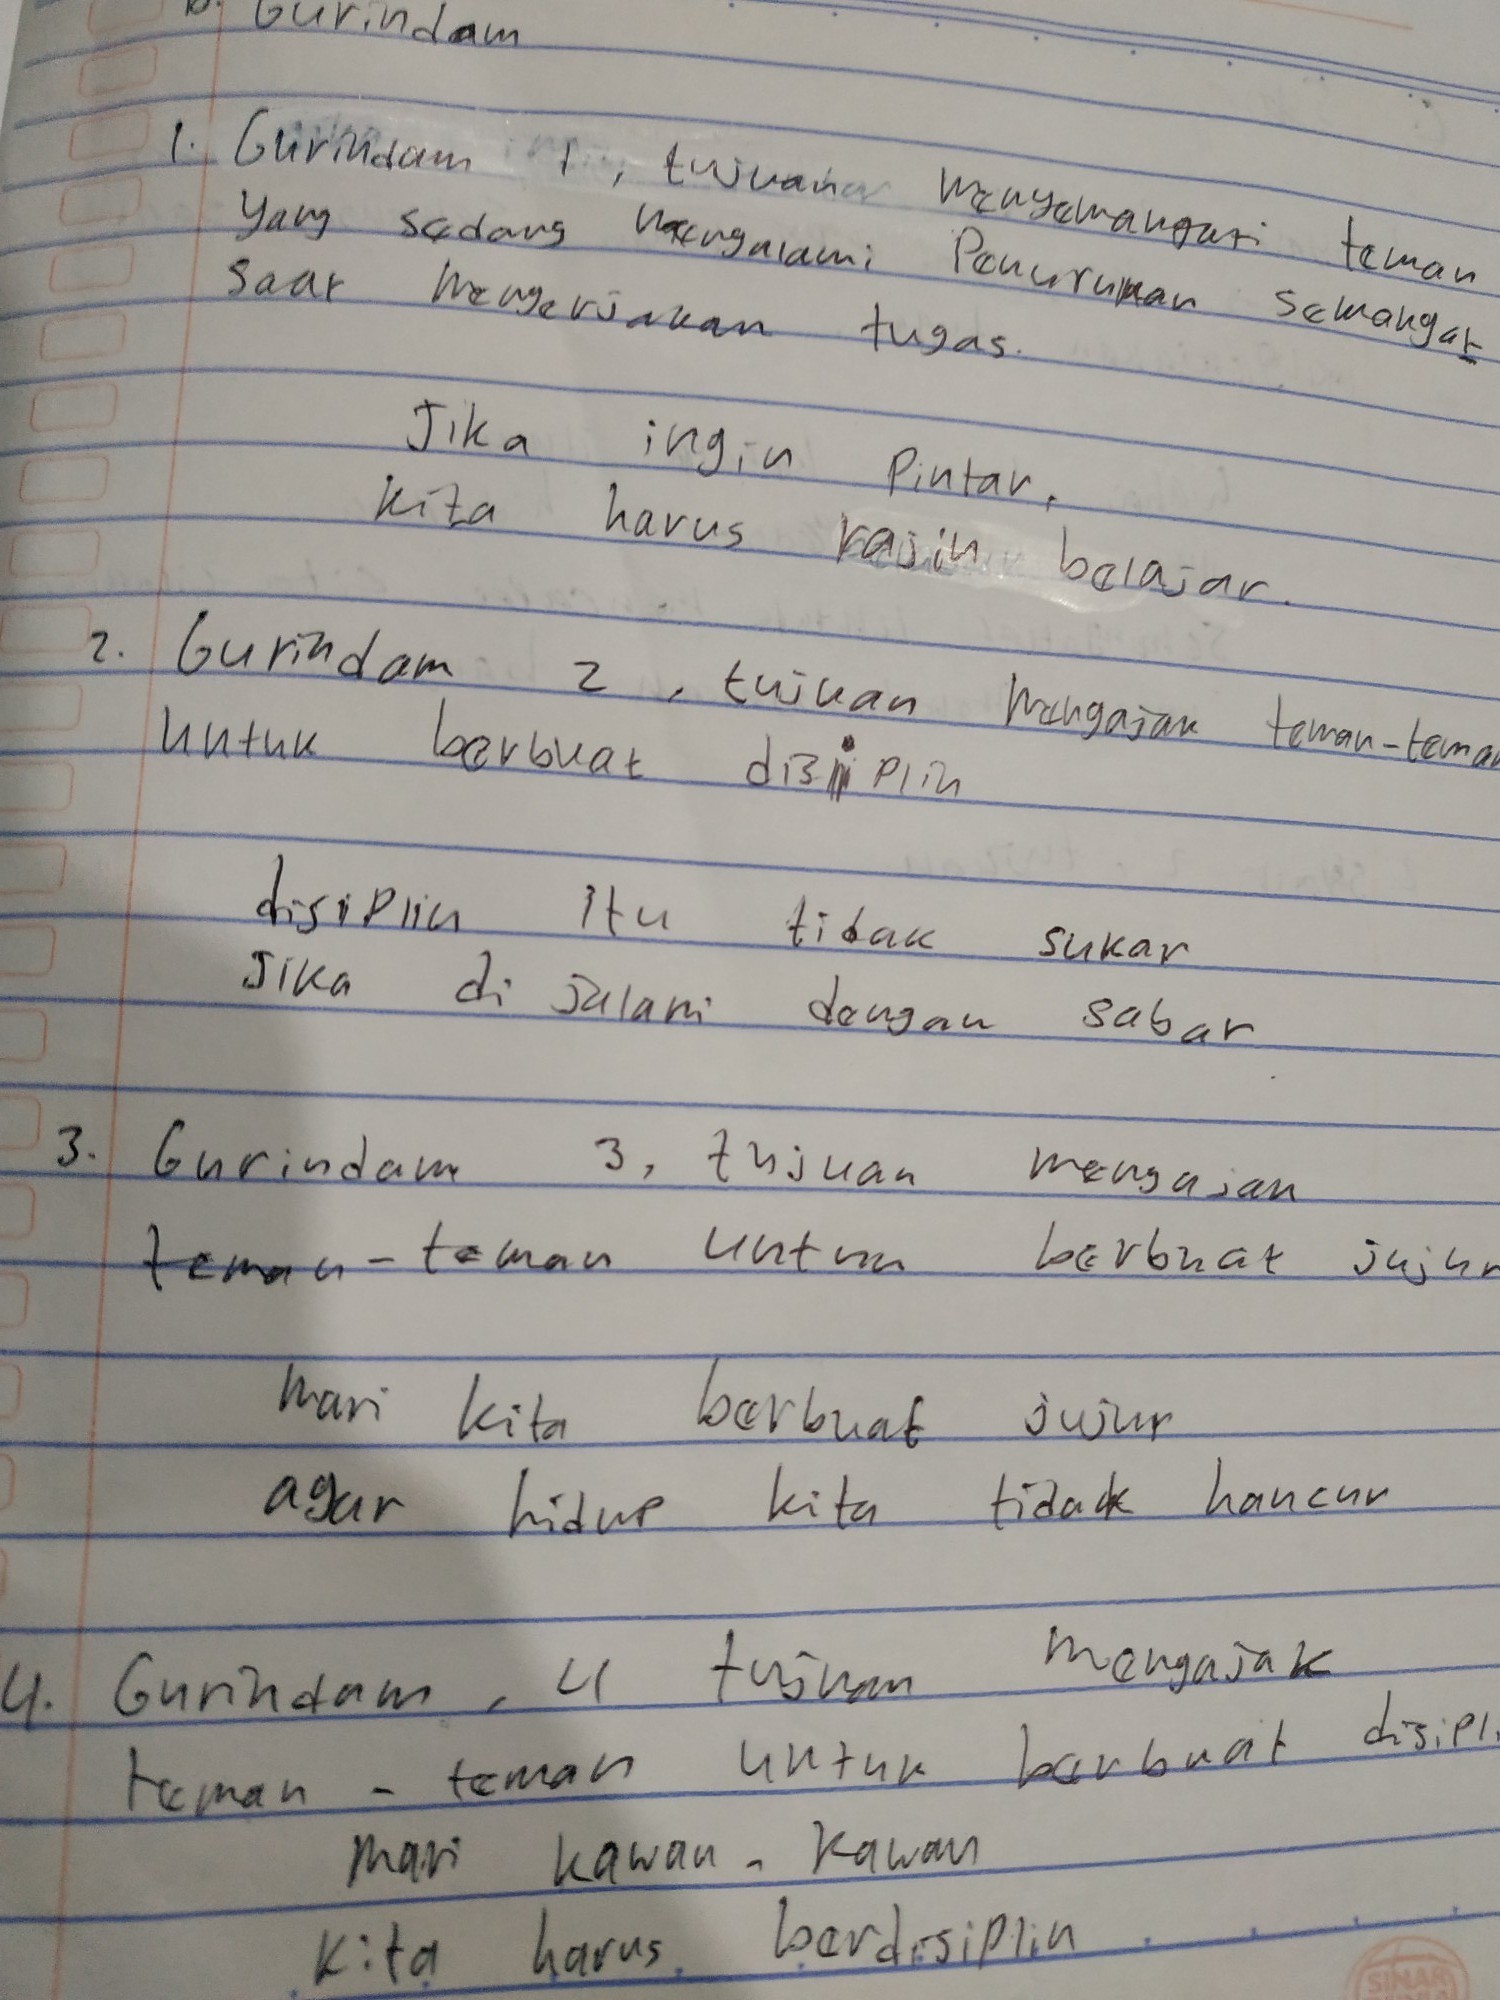 b. Gurindam
1. Gurindam 1, tujuan menyemangati teman
yang sedang mengalami Penurunan semangat
saat mengerjakan tugas.
Jika ingin Pintar,
kita harus rajin belajar.
2. Gurindam 2, tujuan mengajak teman-teman
untuk berbuat disiplin
disiplin itu tidak sukar
Jika di jalani dengan sabar
3. Gurindam 3, tujuan mengajak
teman-teman untuk berbuat jujur
mari kita berbuat jujur
agar hidup kita tidak hancur
4. Gurindam, 4 tujuan mengajak
teman-teman untuk berbuat disipl
mari kawan-kawan
kita harus berdisiplin
SINAR